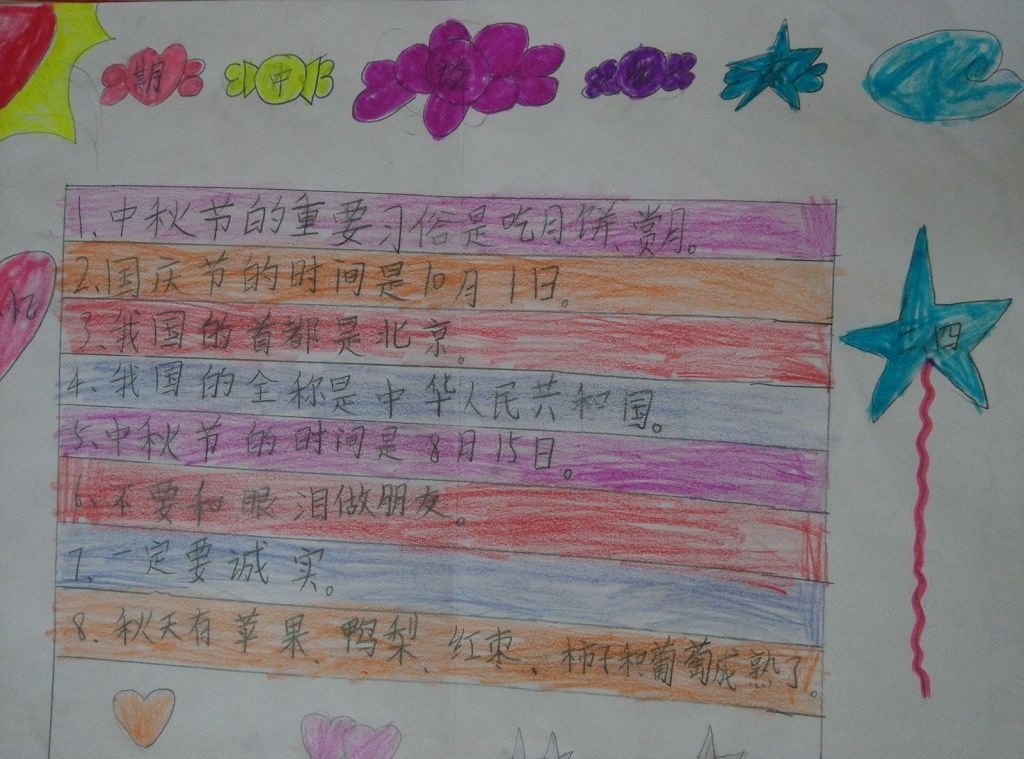 期中
1、中秋节的重要习俗是吃月饼、赏月。
2、国庆节的时间是10月1日。
3、我国的首都是北京。
4、我国的全称是中华人民共和国。
5、中秋节的时间是8月15日。
6、不要和眼泪做朋友。
7、一定要诚实。
8、秋天有苹果、鸭梨、红枣、柿子和葡萄成熟了。
忆
二、四